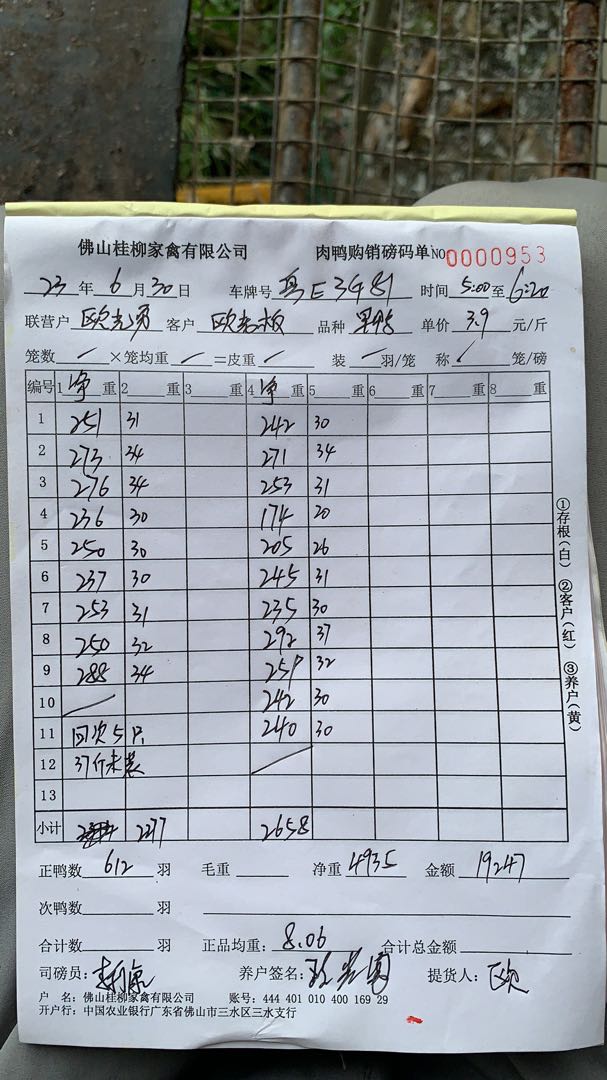 佛山桂柳家禽有限公司 肉鸭购销磅码单 NO 0000953
23 年 6 月 30 日 车牌号 粤E3981 时间 5:00 至 6:20
联营户 客户 品种 单价 3.9 元/斤
笼数 ×笼均重 =皮重 装 羽/笼 称 笼/磅
编号 1 净 重 2 重 3 重 4 净 重 5 重 6 重 7 重 8 重
1 251 31 242 30
2 273 34 271 34
3 276 34 253 31
4 236 30 174 20
5 250 30 205 26
6 237 30 245 31
7 253 31 235 30
8 250 32 292 37
9 288 34 259 32
10 242 30
11 回次5只 240 30
12 37斤未装
13
小计 277 2658
正鸭数 612 羽 毛重 净重 4935 金额 19247
次鸭数 羽
合计数 羽 正品均重: 8.06 合计总金额
司磅员: 养户签名: 提货人: 欧
户 名: 佛山桂柳家禽有限公司 账号: 444 401 010 400 169 29
开户行: 中国农业银行广东省佛山市三水区三水支行
①存根(白) ②客户(红) ③养户(黄)